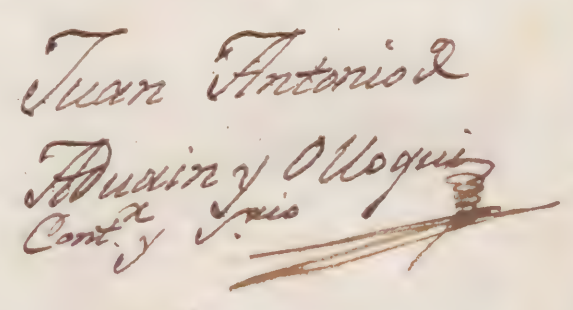 Juan Antonio d
Aduain y Olloqui
Cont.r y S.rio